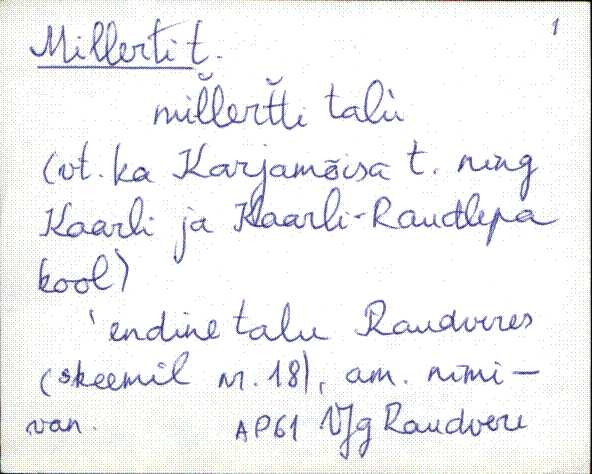 1
Millerti t.
mil̆lert̆ti talù
(vt. ka Karjamõisa t. ning
Kaarli ja Kaarli-Raudlepa
kool)
'endine talu Raudveres
(skeemil nr. 18), am. nimi –
van. AP61 VJg Raudvere